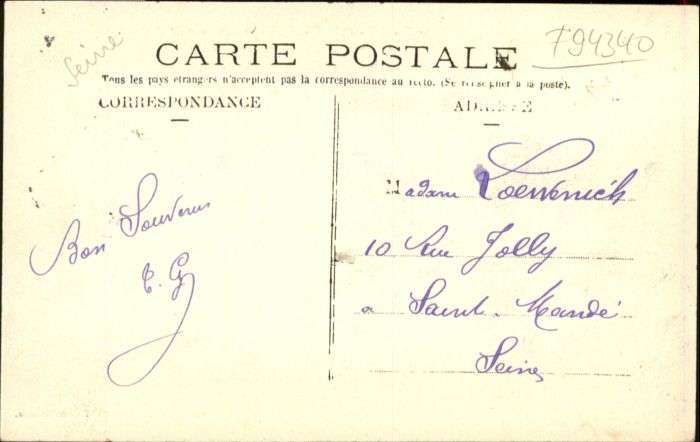 Seine
794340
CARTE POSTALE
Tous les pays étrangers n'acceptent pas la correspondance au recto. (Se renseigner à la poste).
CORRESPONDANCE
ADRESSE
Bon Souvenir
Madame Loewenich
10 Rue Jolly
a Saint-Mandé
Seine